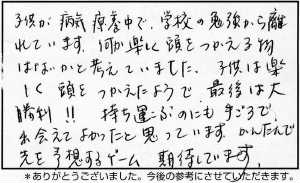 子供が病気療養中で、学校の勉強から離
れています。何か楽しく頭をつかえる物
はないかと考えていました。子供は楽
しく頭をつかえたようで、最後は大
勝利!! 持ち運ぶのにも手ごろで、
出会えてよかったと思っています。かんたんで
先を予想するゲーム 期待しています。
*ありがとうございました。今後の参考にさせていただきます。